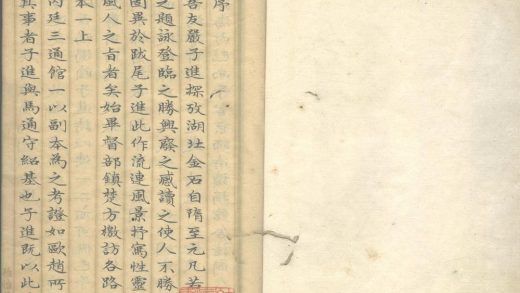 序
吾友嚴子進探攷湖北金石自隋至元凡若
之題詠登臨之勝興廢之感讀之使人不勝
固異於跋尾子進此作流連風景抒寫性靈
風人之旨者矣始畢督部鎮楚方檄訪各路
本一上
內廷三通館一以副本為之考證如歐趙所
其事者子進與馬通守紹基也子進既以此